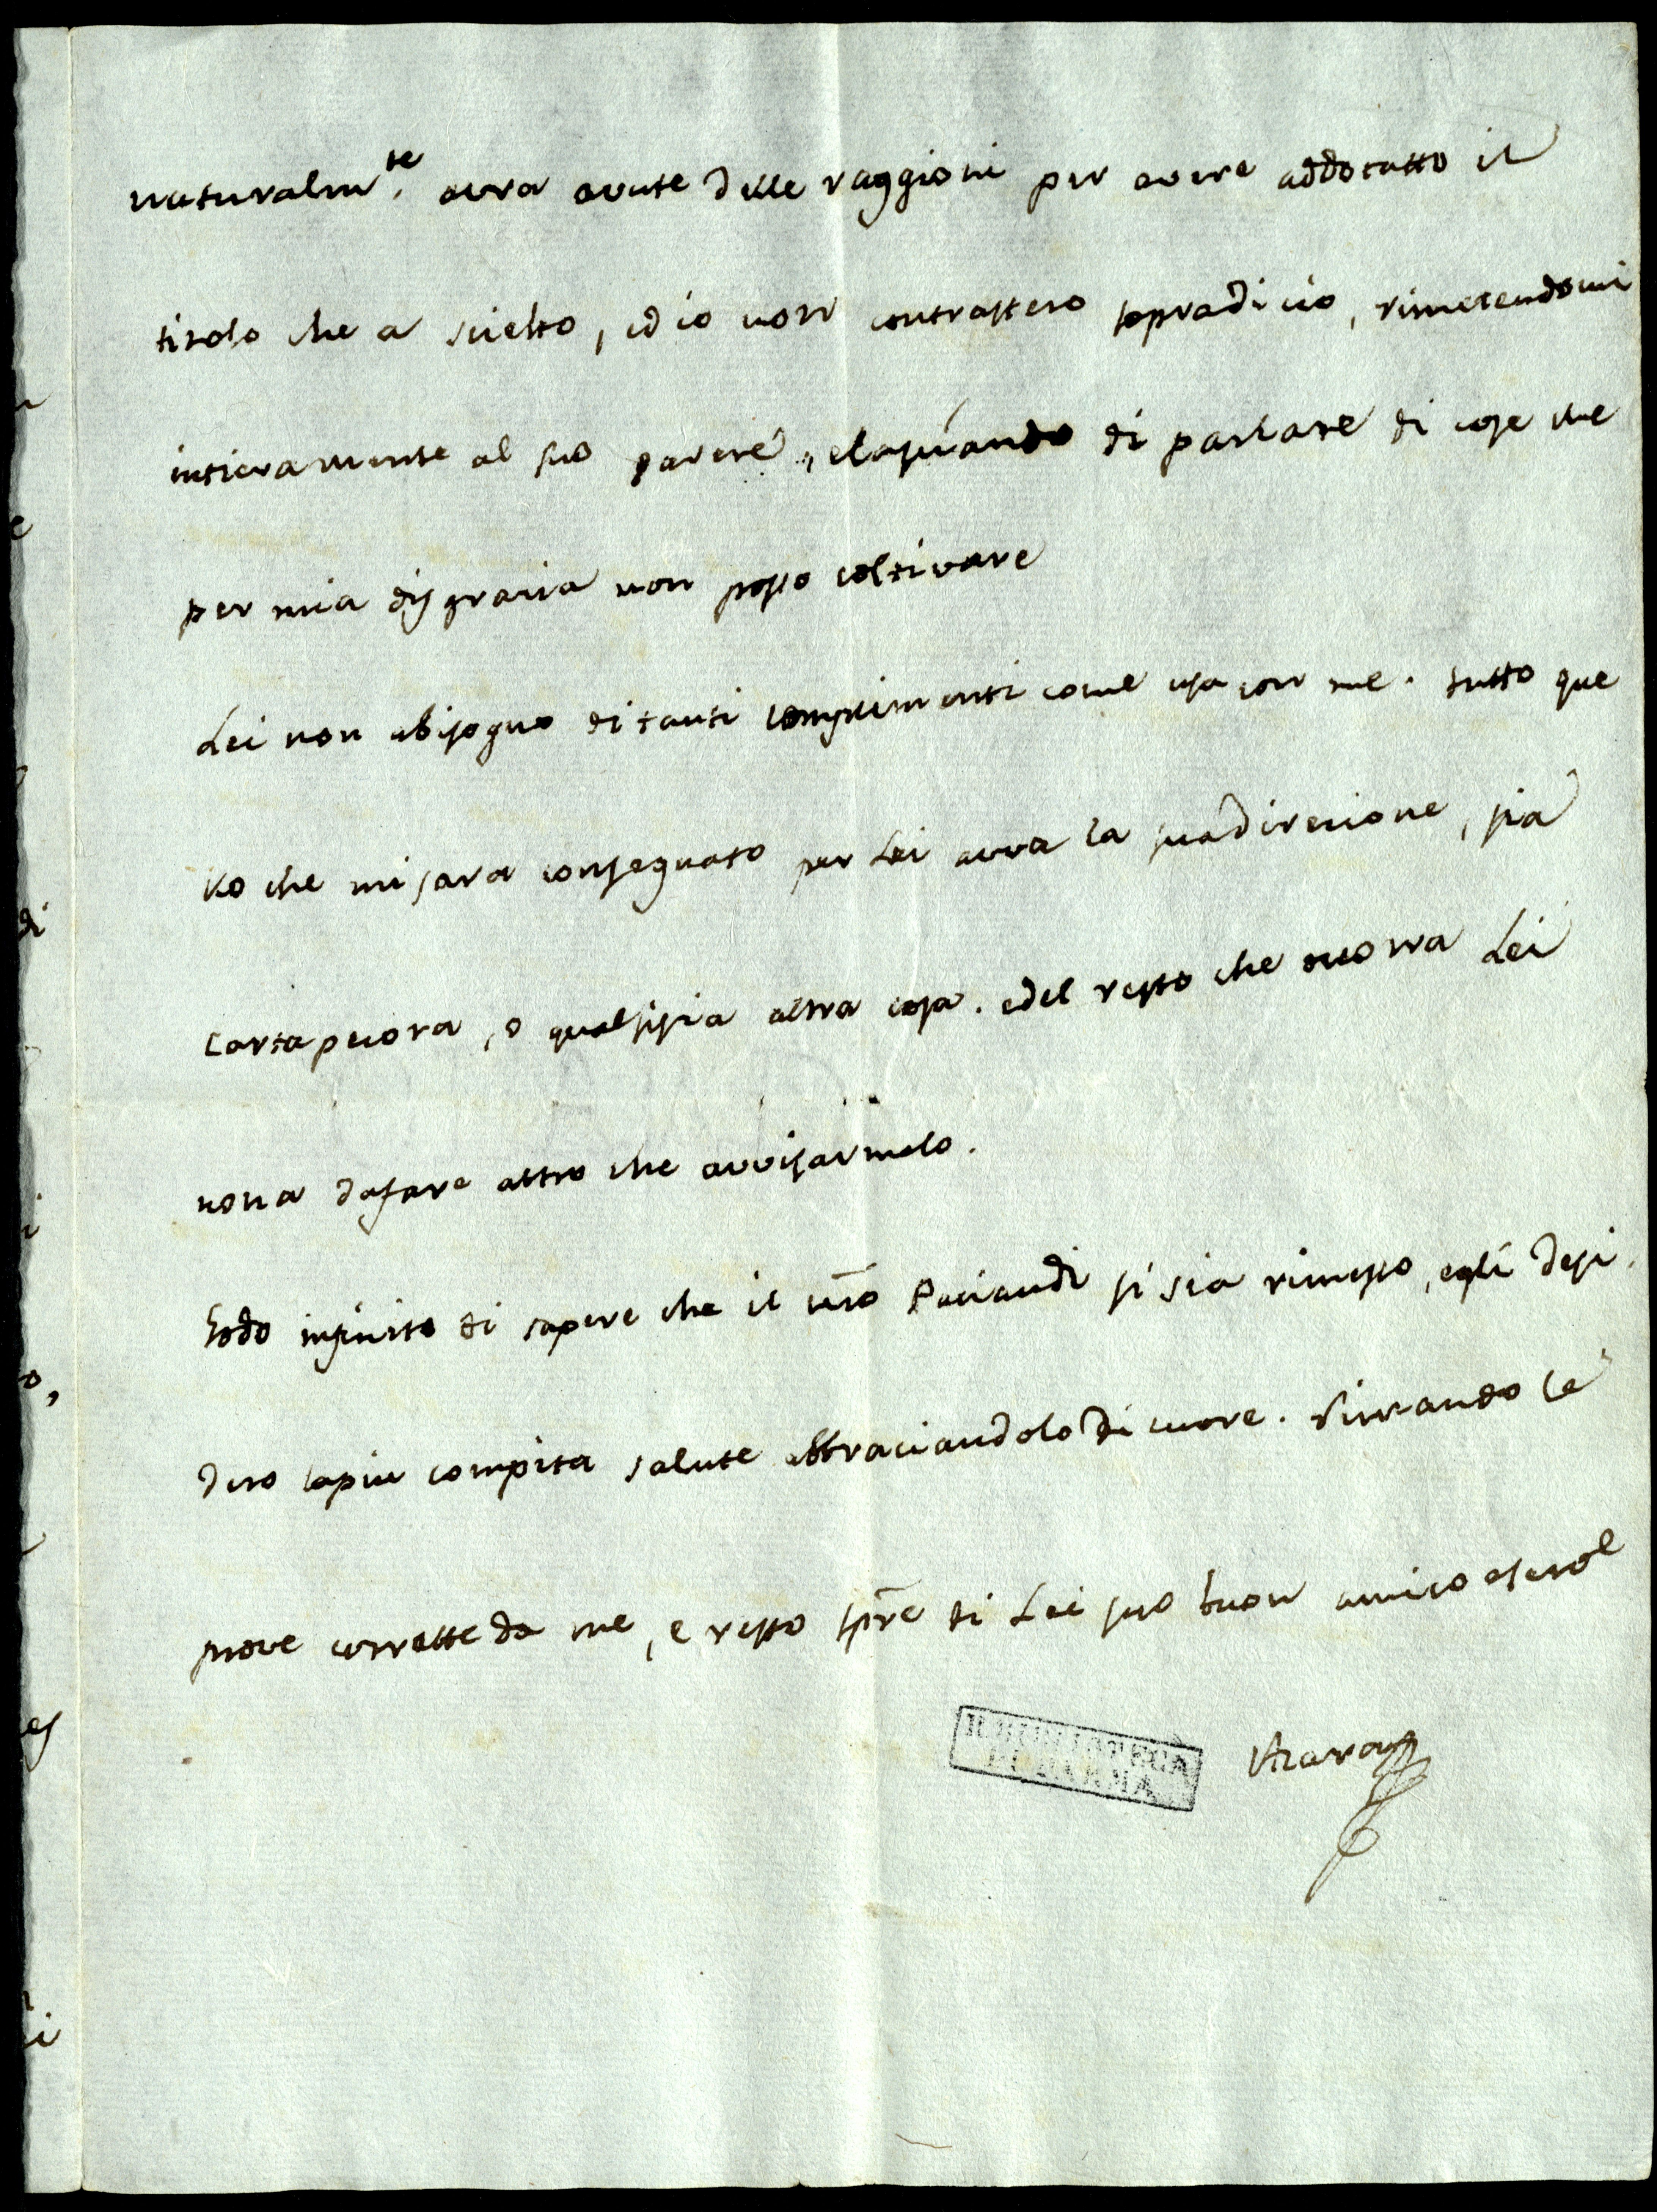 naturalm.te avra avute delle raggioni per avere addotatto il
titolo che a scielto, ed io non contrastero sopradicio, rimetendomi
intieramente al suo parere, elasciando di parlare di cose che
per mia disgracia non posso coltivare
Lei non abisogno di tanti complimenti come usa con me. tutto que
llo che mi sara consegnato per Lei avra la suadirecione, sia
cartapecora, o qualsisia altra cosa. edel resto che ocorra Lei
nona dafare altro che avvisarmelo.
Godo infinito di sapere che il nro Paciaudi si sia rimesso, egli desi
dero lapiu compita salute abbraciandolo di cuore. Rimando le
prove corrette da me, e resto spre di Lei suo buon amico eserve
Azara
R. BIBLIOTECA
DI PARMA
di
i
o,